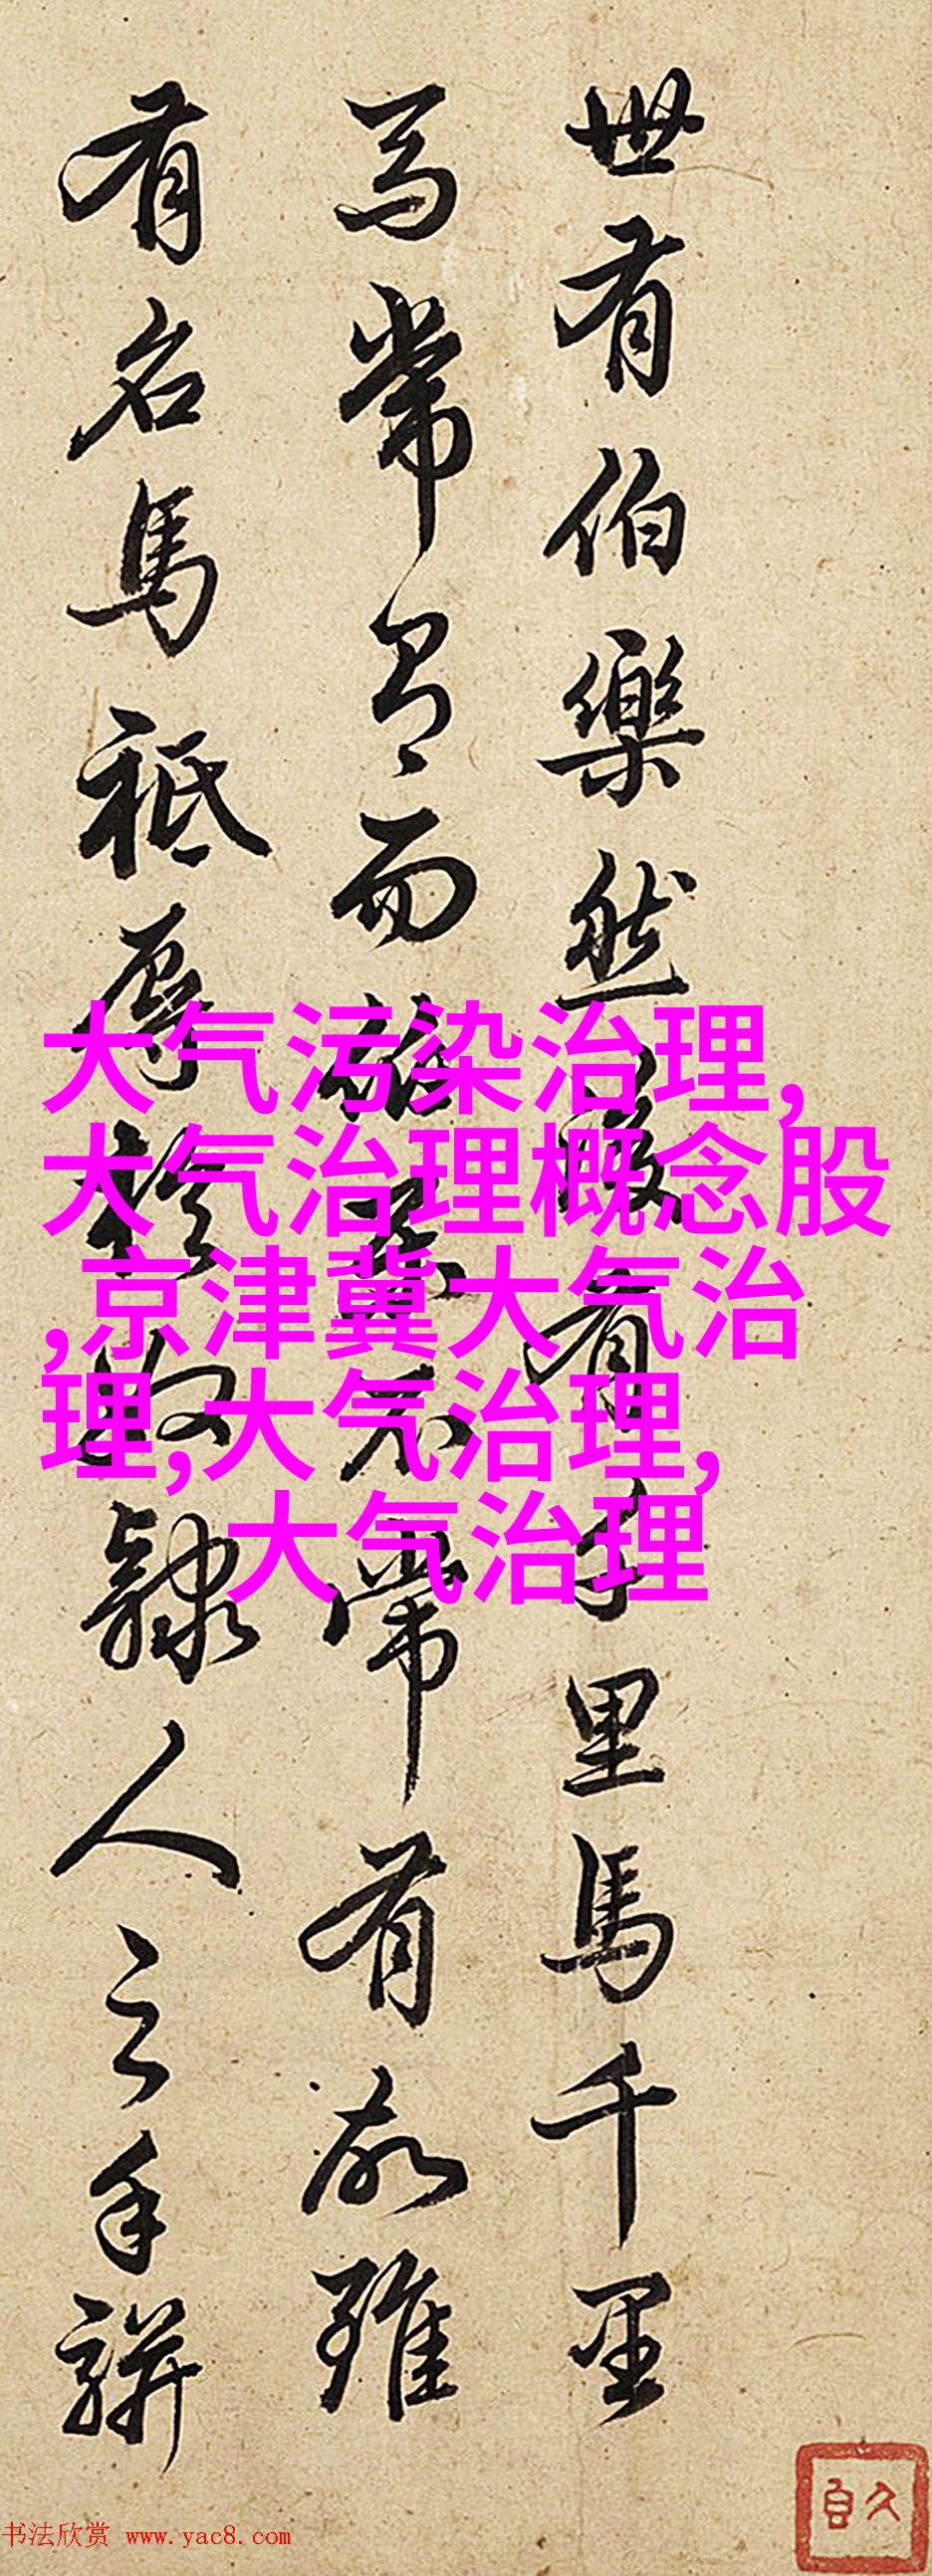 世有伯樂然後有千里馬千里
馬常有而伯樂不常有故雖
有名馬祗辱於奴隸人之手駢
大气污染治理,
大气治理概念股
,京津冀大气治
理,大气治理,
大气治理
书法欣赏 www.yac8.com